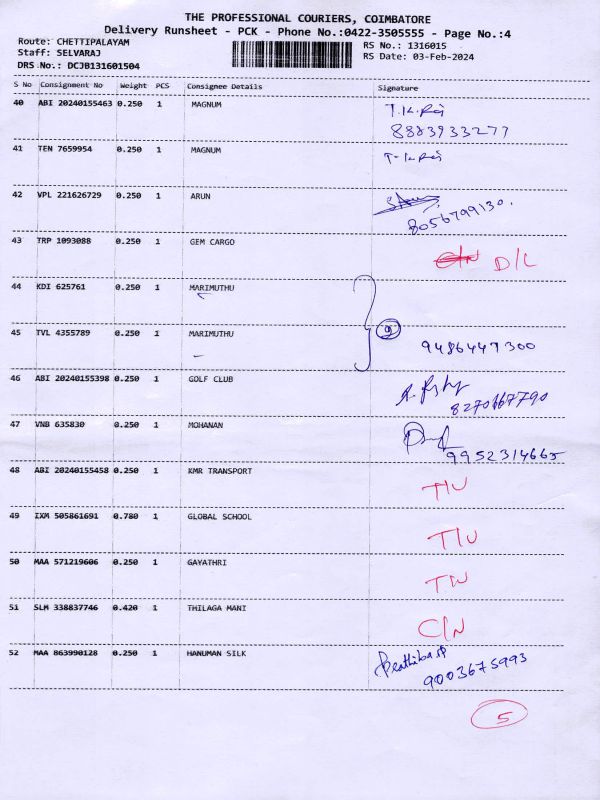 THE PROFESSIONAL COURIERS, COIMBATORE
Delivery Runsheet - PCK - Phone No.:0422-3505555 - Page No.:4
Route: CHETTIPALAYAM RS No.: 1316015
Staff: SELVARAJ RS Date: 03-Feb-2024
DRS No.: DCJB131601504
S No Consignment No Weight PCS Consignee Details Signature
40 ABI 20240155463 0.250 1 MAGNUM T.K.Raj
8883933277
41 TEN 7659954 0.250 1 MAGNUM T-K.Raj
42 VPL 221626729 0.250 1 ARUN
8056799130.
43 TRP 1093088 0.250 1 GEM CARGO D/L
44 KDI 625761 0.250 1 MARIMUTHU
45 TVL 4355789 0.250 1 MARIMUTHU 9
9486447300
46 ABI 20240155398 0.250 1 GOLF CLUB
8270667790
47 VNB 635830 0.250 1 MOHANAN
9952314665
48 ABI 20240155458 0.250 1 KMR TRANSPORT T/U
49 IXM 505861691 0.780 1 GLOBAL SCHOOL T/U
50 MAA 571219606 0.250 1 GAYATHRI T/U
51 SLM 338837746 0.420 1 THILAGA MANI C/N
52 MAA 863990128 0.250 1 HANUMAN SILK
9003675993
5